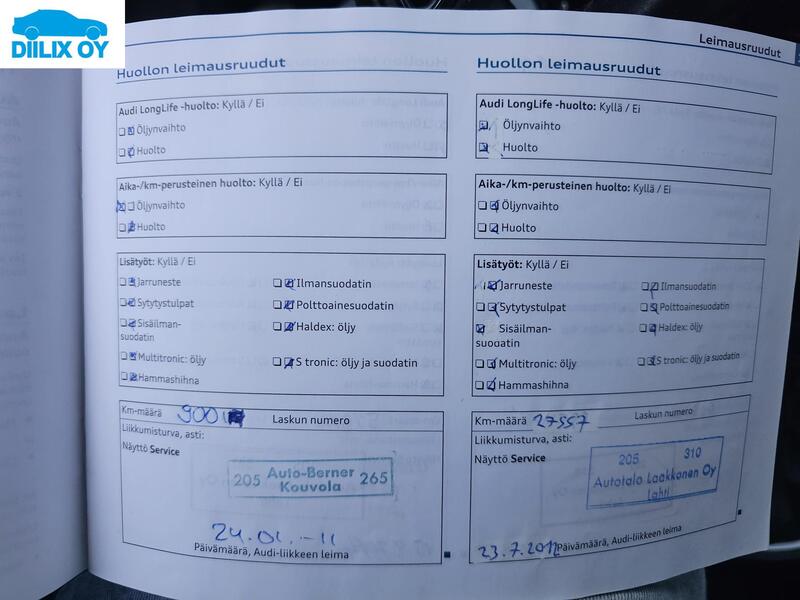 DIILIX OY
Leimausruudut
Huollon leimausruudut
Audi LongLife -huolto: Kyllä / Ei
Öljynvaihto
Huolto
Aika-/km-perusteinen huolto: Kyllä / Ei
Öljynvaihto
Huolto
Lisätyöt: Kyllä / Ei
Jarruneste
Ilmansuodatin
Sytytystulpat
Polttoainesuodatin
Sisäilman-
suodatin
Haldex: öljy
Multitronic: öljy
S tronic: öljy ja suodatin
Hammashihna
Km-määrä
Laskun numero
Liikkumisturva, asti:
Näyttö Service
205 Auto-Berner 265
Kouvola
24.01.-11
Päivämäärä, Audi-liikkeen leima
Huollon leimausruudut
Audi LongLife -huolto: Kyllä / Ei
Öljynvaihto
Huolto
Aika-/km-perusteinen huolto: Kyllä / Ei
Öljynvaihto
Huolto
Lisätyöt: Kyllä / Ei
Jarruneste
Ilmansuodatin
Sytytystulpat
Polttoainesuodatin
Sisäilman-
suodatin
Haldex: öljy
Multitronic: öljy
S tronic: öljy ja suodatin
Hammashihna
Km-määrä 27557 Laskun numero
Liikkumisturva, asti:
Näyttö Service
205 310
Autotalo Laakkonen Oy
Lahti
23.7.2012
Päivämäärä, Audi-liikkeen leima